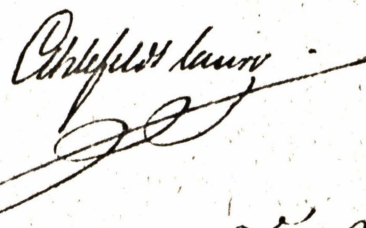 Ahlefeldt Laurv